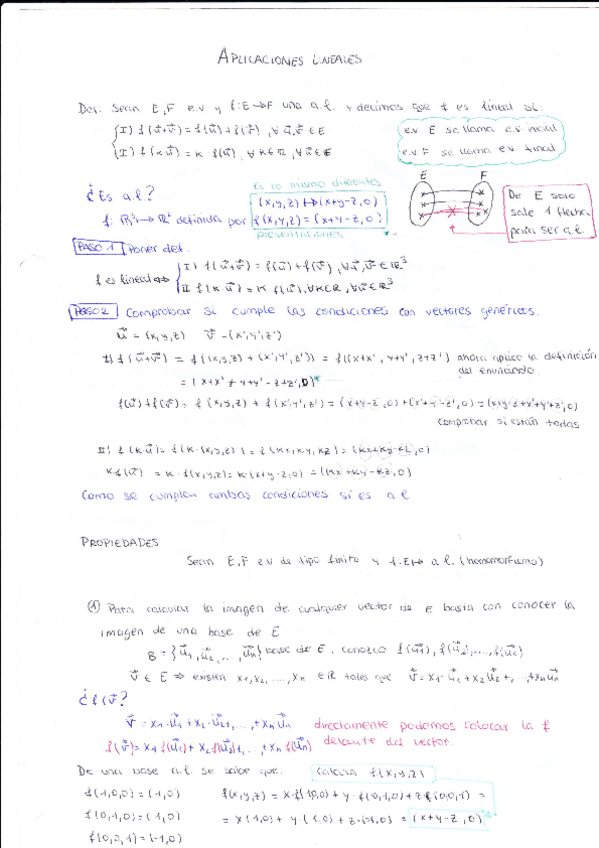 APLICACIONES LINEALES
Def: Sean E,F e.v y f:E→F una a.l. y decimos que f es lineal si:
I) f(u⃗+v⃗) = f(u⃗)+f(v⃗), ∀ u⃗,v⃗ ∈ E
II) f(k·u⃗) = k·f(u⃗), ∀ k∈ℝ, ∀ u⃗ ∈ E
e.v E se llama e.v. inicial
e.v F se llama e.v final
¿Es a.l?
Es lo mismo diferentes
(x,y,z) ↦ (x+y-z,0)
f: ℝ³→ℝ² definida por f(x,y,z) = (x+y-z,0)
presentaciones
E F
De E solo
sale 1 flecha
para ser a.l.
PASO 1 Poner def.
f es lineal ⇔
I) f(u⃗+v⃗) = f(u⃗)+f(v⃗), ∀u⃗,v⃗ ∈ ℝ³
II f(k·u⃗) = k·f(u⃗), ∀k∈ℝ, ∀u⃗∈ℝ³
PASO 2 Comprobar si cumple las condiciones con vectores genéricos.
u⃗ = (x,y,z) v⃗ = (x',y',z')
I) f(u⃗+v⃗) = f((x,y,z) + (x',y',z')) = f((x+x', y+y', z+z') ahora aplico la definición
del enunciado
= (x+x' + y+y' - z+z', 0)
f(u⃗)+f(v⃗) = f(x,y,z) + f(x',y',z') = (x+y-z,0)+(x'+y'-z',0) = (x+y-z+x'+y'+z',0)
comprobar si están todas
II) f(k·u⃗) = f(k·(x,y,z)) = f(kx,ky,kz) = (kx+ky-kz,0)
k·f(u⃗) = k·f(x,y,z) = k·(x+y-z,0) = (kx+ky-kz,0)
Como se cumplen ambas condiciones si es a.l
PROPIEDADES
Sean E,F e.v de tipo finito y f:E↦ a.l. (homomorfismo)
① Para calcular la imagen de cualquier vector de E basta con conocer la
imagen de una base de E
B = {u⃗1, u⃗2, ..., u⃗n} base de E, conozco f(u⃗1), f(u⃗2), ..., f(u⃗n)
v⃗ ∈ E ⇒ existen x1, x2, ..., xn ∈ ℝ tales que v⃗ = x1·u⃗1 + x2 u⃗2 +, ..., +xn u⃗n
¿f(v⃗)?
v⃗ = x1·u⃗1 + x2·u⃗2 +, ..., +xn u⃗n directamente podemos colocar la f
f(v⃗) = x1 f(u⃗1) + x2 f(u⃗2) +, ..., + xn f(u⃗n) delante del vector.
De una base a.l. se sabe que: calcula f(x,y,z)
f(1,0,0) = (1,0) f(x,y,z) = x·f(1,0,0) + y·f(0,1,0) + z·f(0,0,1) =
f(0,1,0) = (1,0) = x(1,0) + y(1,0) + z·(-1,0) = (x+y-z,0)
f(0,0,1) = (-1,0)